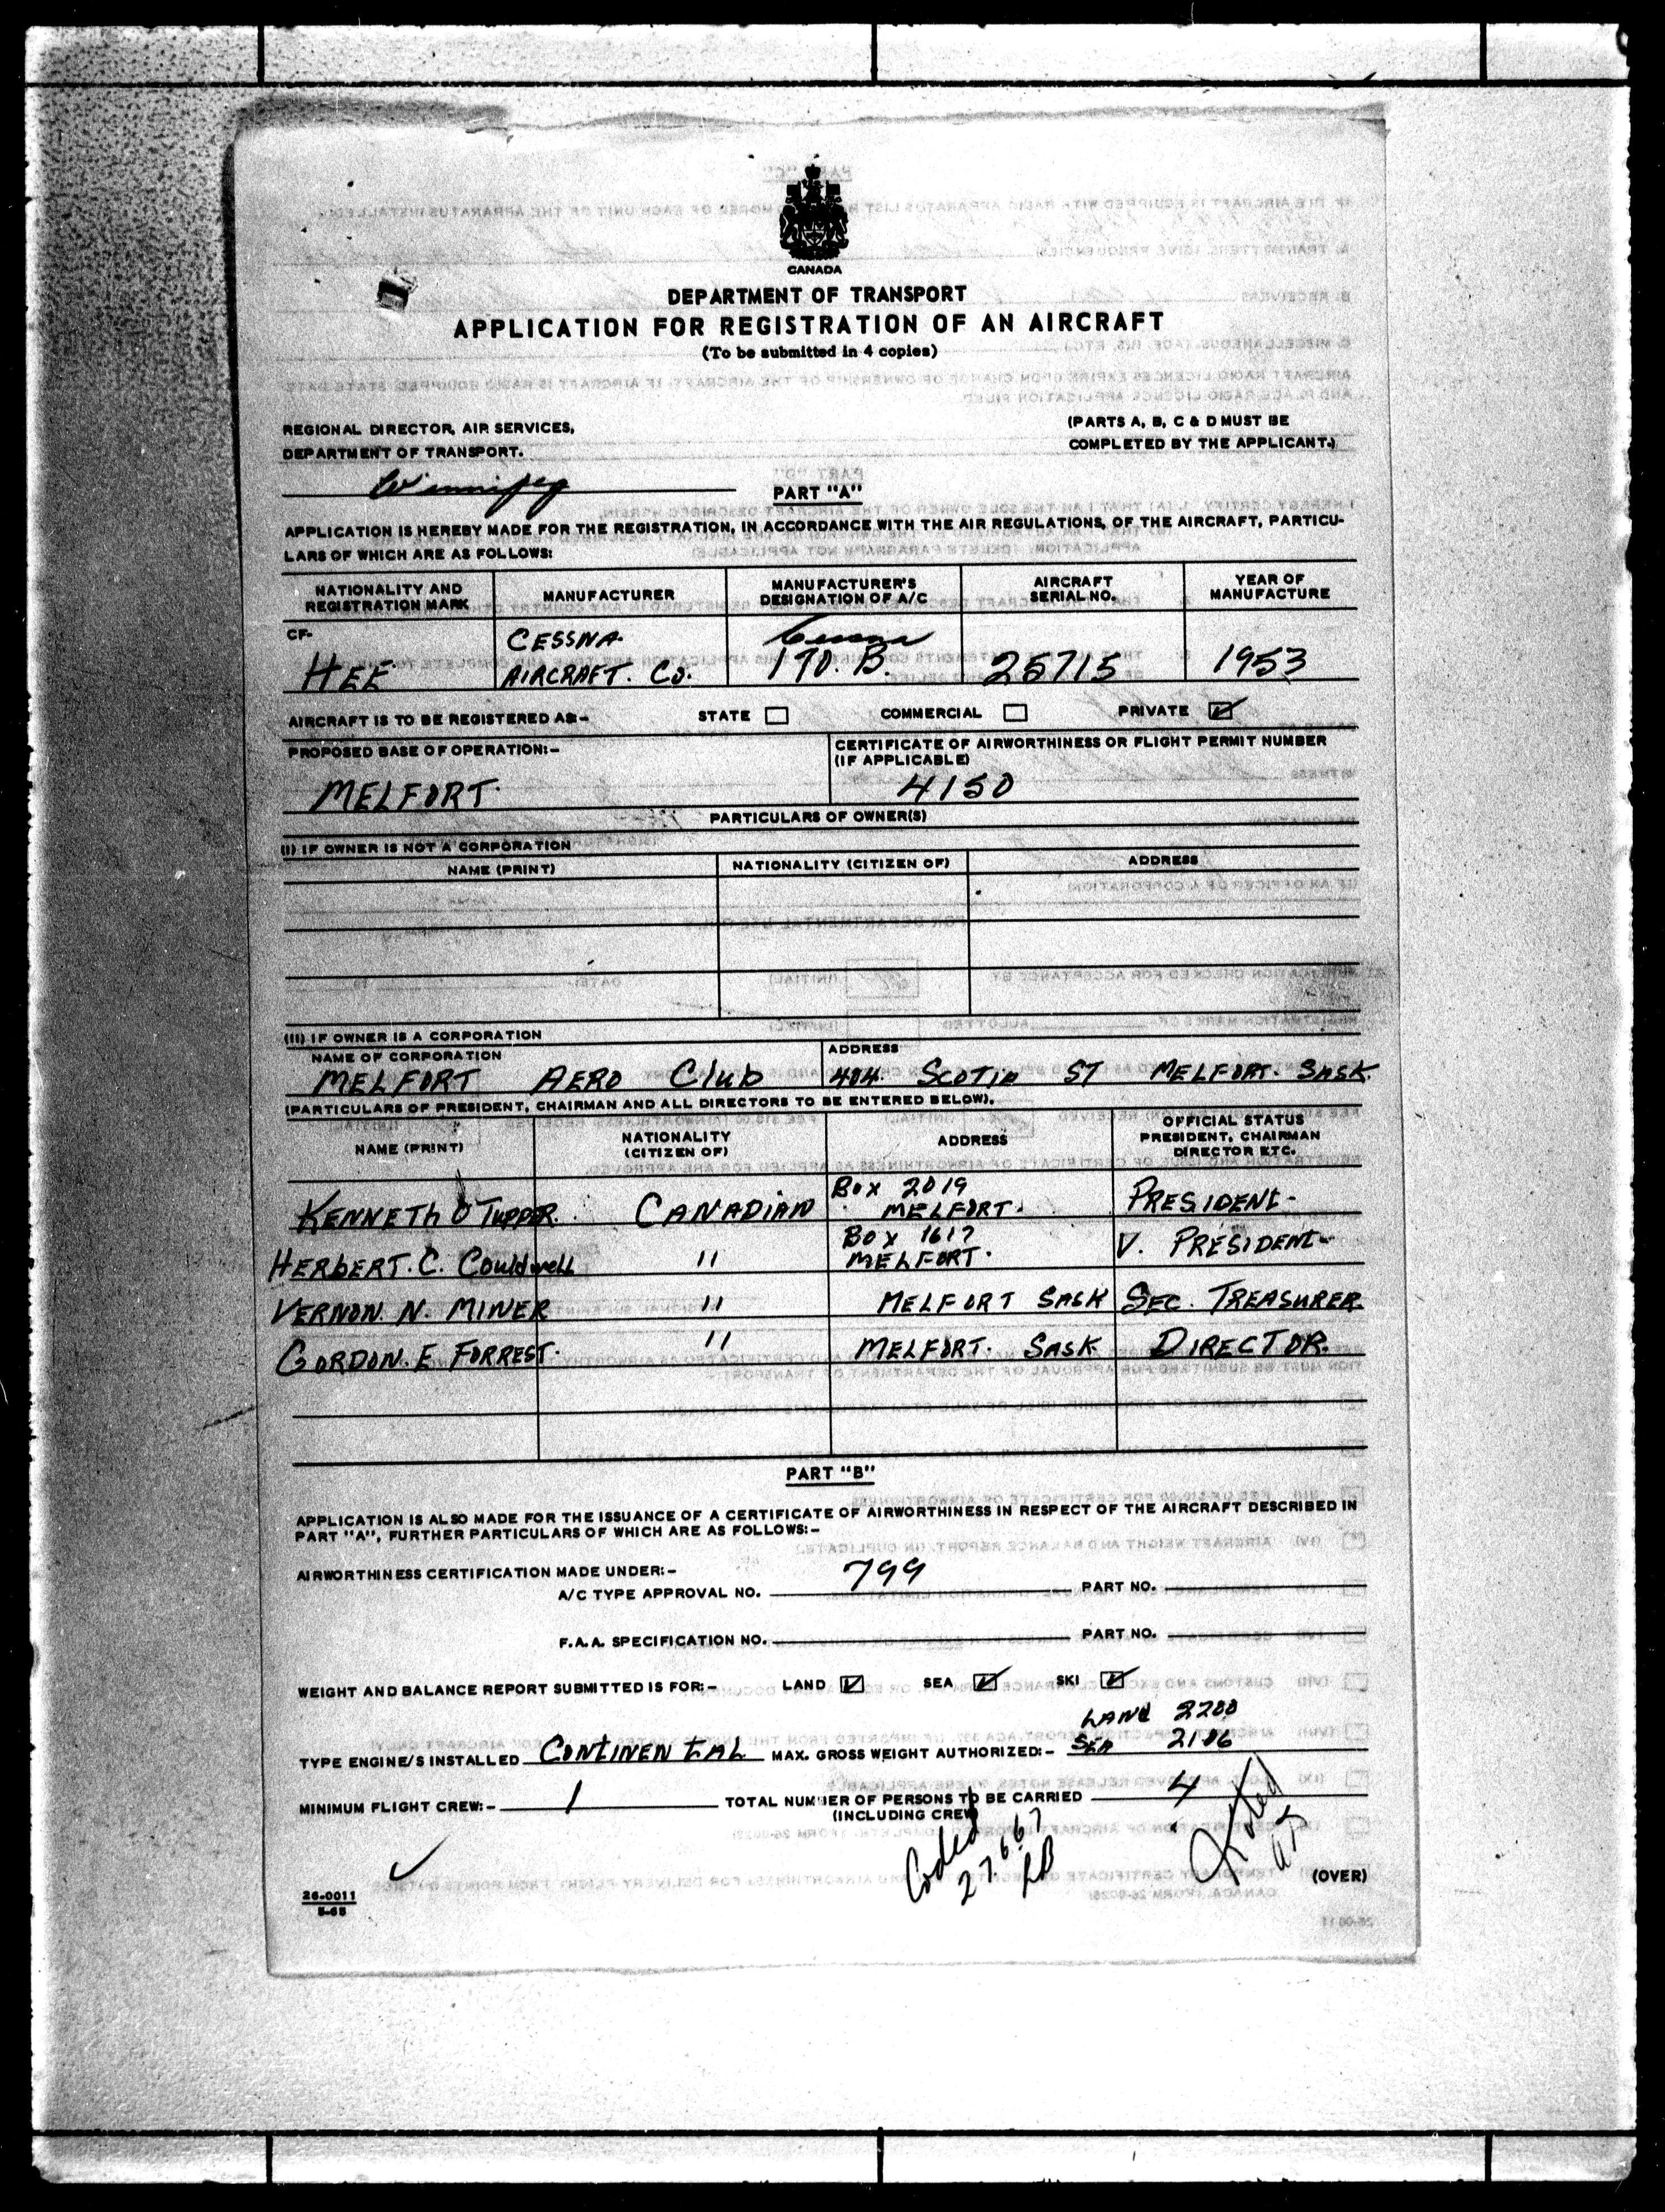 CANADA
DEPARTMENT OF TRANSPORT
APPLICATION FOR REGISTRATION OF AN AIRCRAFT
(To be submitted in 4 copies)
REGIONAL DIRECTOR, AIR SERVICES,
DEPARTMENT OF TRANSPORT.
(PARTS A, B, C & D MUST BE
COMPLETED BY THE APPLICANT.)
Winnipeg
PART "A"
APPLICATION IS HEREBY MADE FOR THE REGISTRATION, IN ACCORDANCE WITH THE AIR REGULATIONS, OF THE AIRCRAFT, PARTICU-
LARS OF WHICH ARE AS FOLLOWS:
NATIONALITY AND REGISTRATION MARK
MANUFACTURER
MANUFACTURER'S DESIGNATION OF A/C
AIRCRAFT SERIAL NO.
YEAR OF MANUFACTURE
CF-
HEE
CESSNA
AIRCRAFT. CO.
Cessna
170. B.
25715
1953
AIRCRAFT IS TO BE REGISTERED AS:- STATE COMMERCIAL PRIVATE
PROPOSED BASE OF OPERATION:-
MELFORT.
CERTIFICATE OF AIRWORTHINESS OR FLIGHT PERMIT NUMBER
(IF APPLICABLE)
4150
PARTICULARS OF OWNER(S)
(I) IF OWNER IS NOT A CORPORATION
NAME (PRINT) NATIONALITY (CITIZEN OF) ADDRESS
(II) IF OWNER IS A CORPORATION
NAME OF CORPORATION
MELFORT AERO Club
ADDRESS
404. SCOTIA ST MELFORT. SASK.
(PARTICULARS OF PRESIDENT, CHAIRMAN AND ALL DIRECTORS TO BE ENTERED BELOW).
NAME (PRINT)
NATIONALITY
(CITIZEN OF)
ADDRESS
OFFICIAL STATUS
PRESIDENT, CHAIRMAN
DIRECTOR ETC.
KENNETH O TUPPER. CANADIAN BOX 2019 MELFORT. PRESIDENT-
HERBERT. C. Couldwell " BOX 1617 MELFORT. V. PRESIDENT-
VERNON. N. MINER " MELFORT SASK SEC. TREASURER.
GORDON. E FORREST. " MELFORT. SASK DIRECTOR.
PART "B"
APPLICATION IS ALSO MADE FOR THE ISSUANCE OF A CERTIFICATE OF AIRWORTHINESS IN RESPECT OF THE AIRCRAFT DESCRIBED IN
PART "A", FURTHER PARTICULARS OF WHICH ARE AS FOLLOWS:-
AIRWORTHINESS CERTIFICATION MADE UNDER:-
A/C TYPE APPROVAL NO. 799 PART NO.
F.A.A. SPECIFICATION NO. PART NO.
WEIGHT AND BALANCE REPORT SUBMITTED IS FOR:- LAND SEA SKI
LAND 2200
TYPE ENGINE/S INSTALLED CONTINENTAL MAX. GROSS WEIGHT AUTHORIZED:- SEA 2106
MINIMUM FLIGHT CREW:- 1 TOTAL NUMBER OF PERSONS TO BE CARRIED 4
(INCLUDING CREW)
Coded
27.6.67
(OVER)
26-0011
5-65